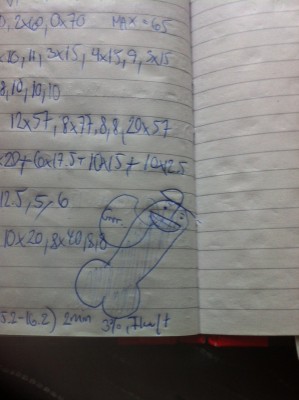 0, 2x60, 0x70 MAX = 65
x10, 11, 3x15, 4x15, 9, 5x15
8, 10, 10, 10
12x57, 8x77, 8, 8, 20x57
x20+6x17.5+10x15+10x12.5
12.5, 5, 6
mm.
10x20, 8x40, 5, 8
5.2-16.2) 2min